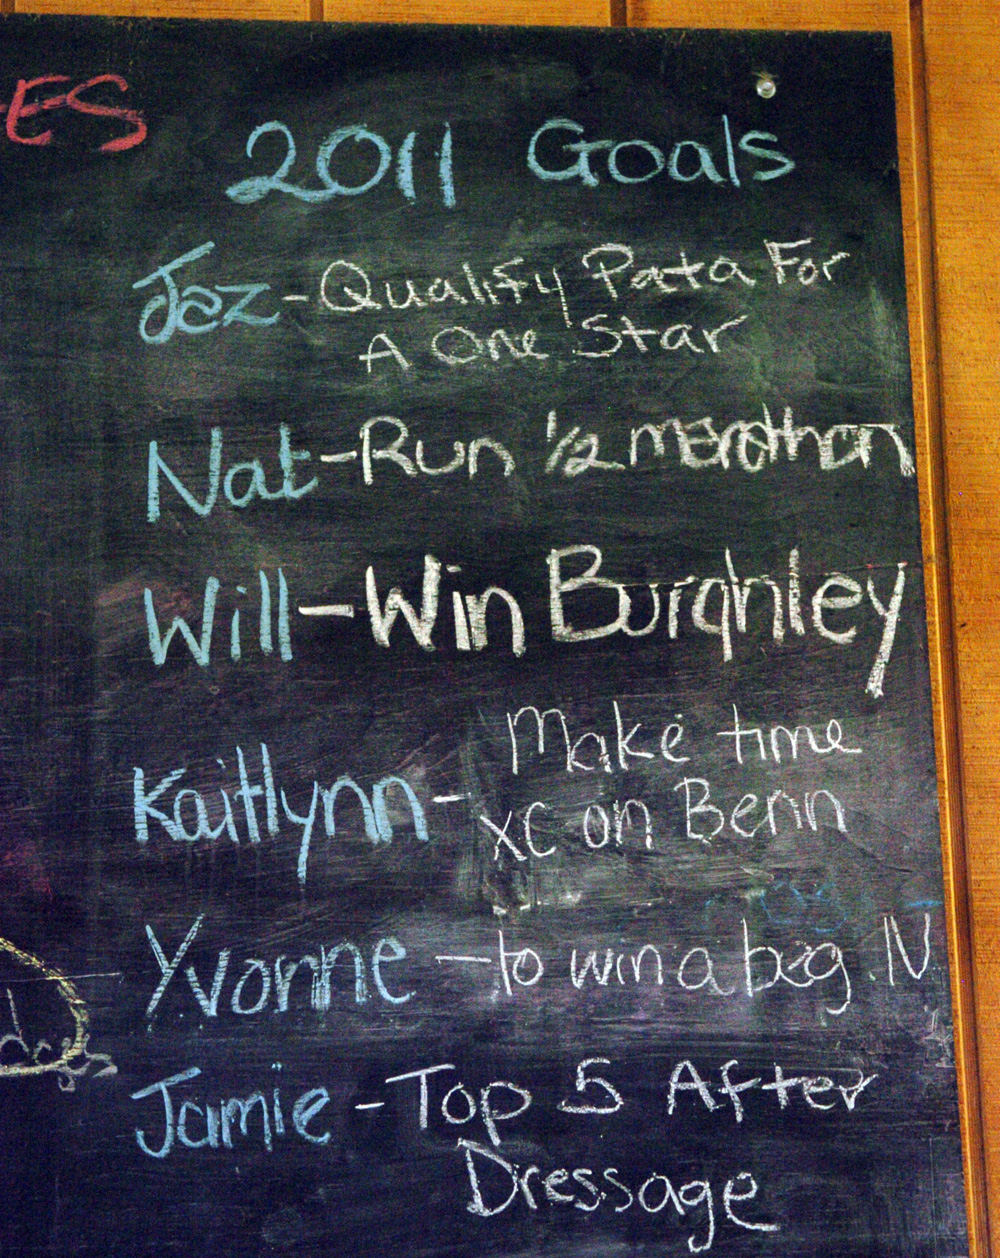 ES
2011 Goals
Jaz - Qualify Pata For
A One Star
Nat - Run 1/2 marathon
Will - Win Burghley
Kaitlynn - Make time
xc on Benn
Yvonne - to win a beg. N
Jamie - Top 5 After
Dressage